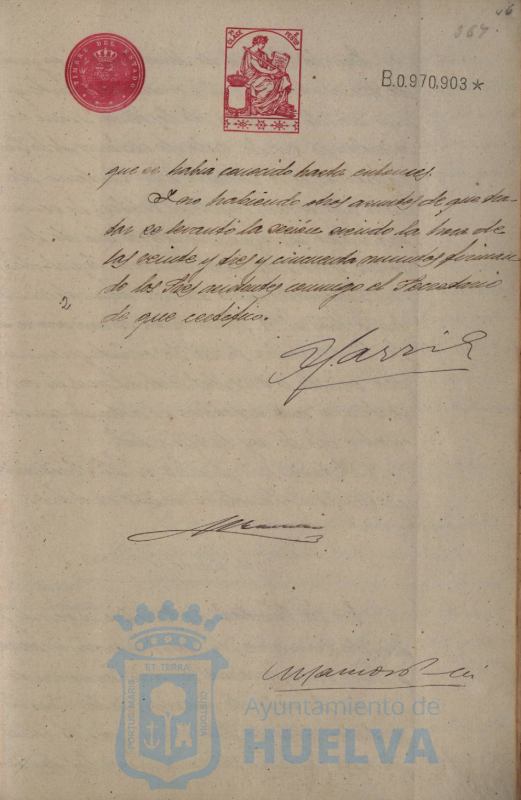 367
TIMBRE DEL ESTADO
CLASE
B.0.970,903*
que se había conocido hasta entonces.
Y no habiendo otros asuntos de que tra-
tar se levantó la sesión siendo la hora de
las veinte y tres y cincuenta minutos firman-
do los Sres asistentes conmigo el Secretario
de que certifico.
PORTUS MARIS
ET TERRÆ
CUSTODIA
Ayuntamiento de
HUELVA